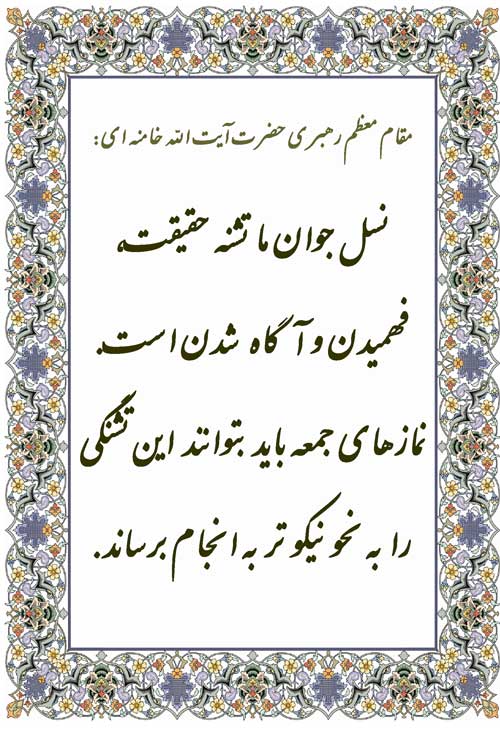 مقام معظم رهبری حضرت آیت الله خامنه ای:
نسل جوان ما تشنه حقیقت،
فهمیدن و آگاه شدن است.
نمازهای جمعه باید بتوانند این تشنگی
را به نحو نیکوتر به انجام برساند.